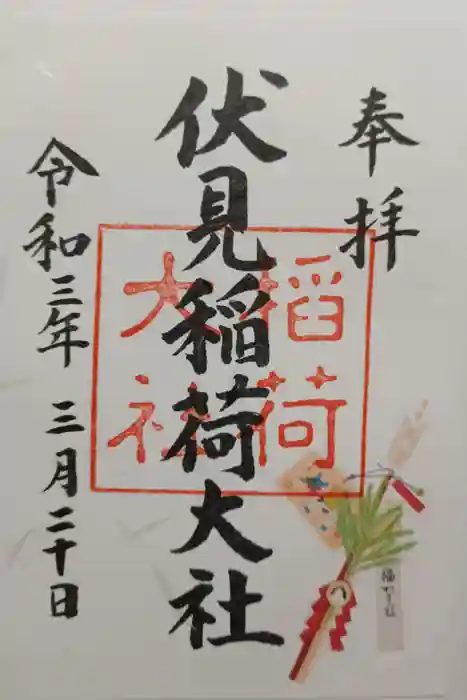 奉拝
伏見稲荷大社
令和三年 三月二十日
稲荷
大社